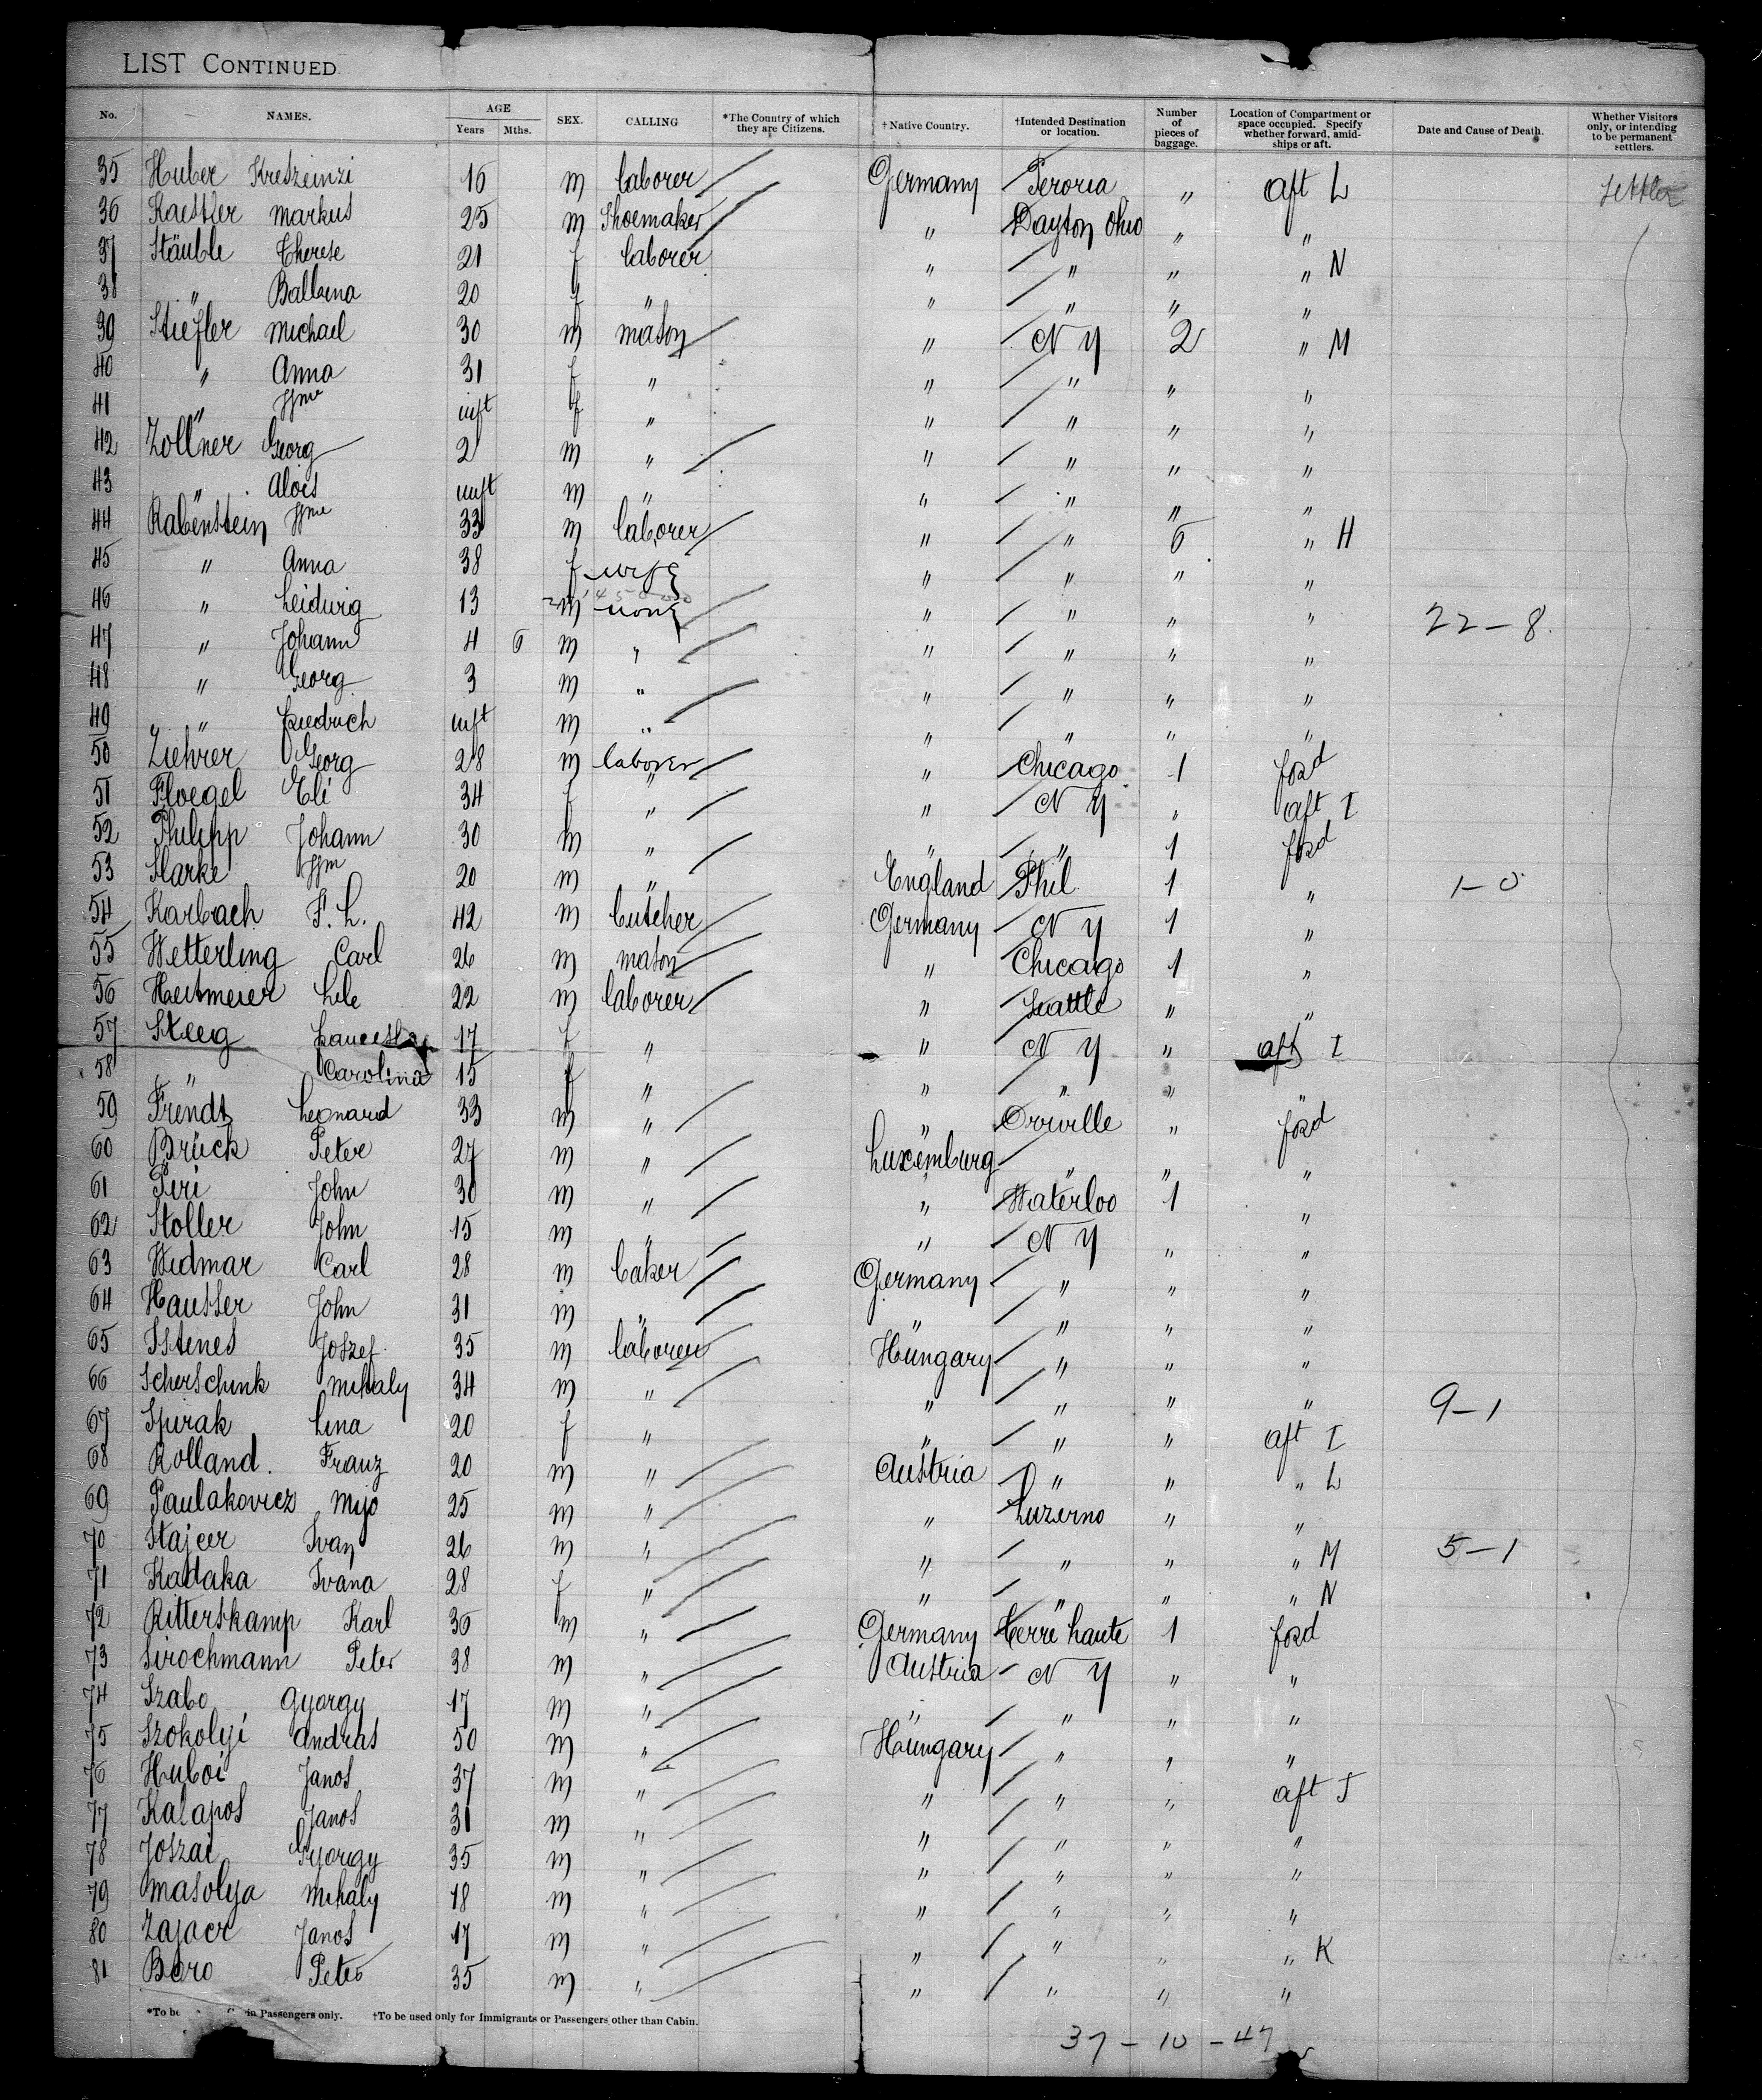 LIST CONTINUED
No. NAMES. AGE Years Mths. SEX. CALLING *The Country of which they are Citizens. †Native Country. †Intended Destination or location. Number of pieces of baggage. Location of Compartment or space occupied. Specify whether forward, amidships or aft. Date and Cause of Death. Whether Visitors only, or intending to be permanent settlers.
35 Huber Kreszeinzi 16 m laborer Germany Peroria " aft L Settler
36 Kaestler Markus 25 m Shoemaker " Dayton Ohio " "
37 Stäuble Therese 21 f laborer " " " " N
38 " Balbina 20 f " " " " "
39 Stiefler Michael 30 m mason " N Y 2 " M
40 " Anna 31 f " " " " "
41 " inft f " " " " "
42 Zollner Georg 2 m " " " " "
43 " Alois inft m " " " " "
44 Rabenstein 33 m laborer " " 6 " H
45 " Anna 38 f wife " " " "
46 " Leidwig 13 m none " " " " 22-8
47 " Johann 4 6 m " " " " "
48 " Georg 3 m " " " " "
49 " Friedrich inft m " " " " "
50 Ziehrer Georg 28 m laborer " Chicago 1 forwd
51 Floegel Eli 34 f " " N Y " aft I
52 Philipp Johann 30 m " " " 1 forwd
53 Starke 20 m " England Phil 1 " 1-0
54 Karbach F. L. 42 m butcher Germany N Y 1 "
55 Wetterling Carl 26 m mason " Chicago 1 "
56 Heitmeier 22 m laborer " Seattle " "
57 Steeg 17 f " " N Y " aft I
58 " Carolina 15 f " " " " "
59 Frendt Leonard 33 m " " Orrville " forwd
60 Brück Peter 27 m " Luxemburg " " "
61 Piri John 30 m " " Waterloo 1 "
62 Stoller John 15 m " " N Y " "
63 Widmar Carl 28 m baker Germany " " "
64 Hausser John 31 m " " " " "
65 Istenes Joszef 35 m laborer Hungary " " "
66 Scherschink Mihaly 34 m " " " " " 9-1
67 Spirak Lina 20 f " " " " aft I
68 Rolland Franz 20 m " Austria " " " L
69 Paulakovicz Mijo 25 m " " Luzerno " "
70 Stajcer Ivan 26 m " " " " " M 5-1
71 Kadaka Ivana 28 f " " " " " N
72 Ritterskamp Karl 36 m " Germany Terre haute 1 forwd
73 Sirochmann Peter 38 m " Austria N Y " "
74 Szabo Gyorgy 17 m " " " " "
75 Szokolyi Andras 50 m " Hungary " " "
76 Huboi Janos 37 m " " " " aft J
77 Kalapos Janos 31 m " " " " "
78 Joszai Gyorgy 35 m " " " " "
79 Masolya Mihaly 18 m " " " " "
80 Zajacr Janos 17 m " " " " " K
81 Boro Peter 35 m " " " " "
*To be in Passengers only. †To be used only for Immigrants or Passengers other than Cabin.
37 - 10 - 47